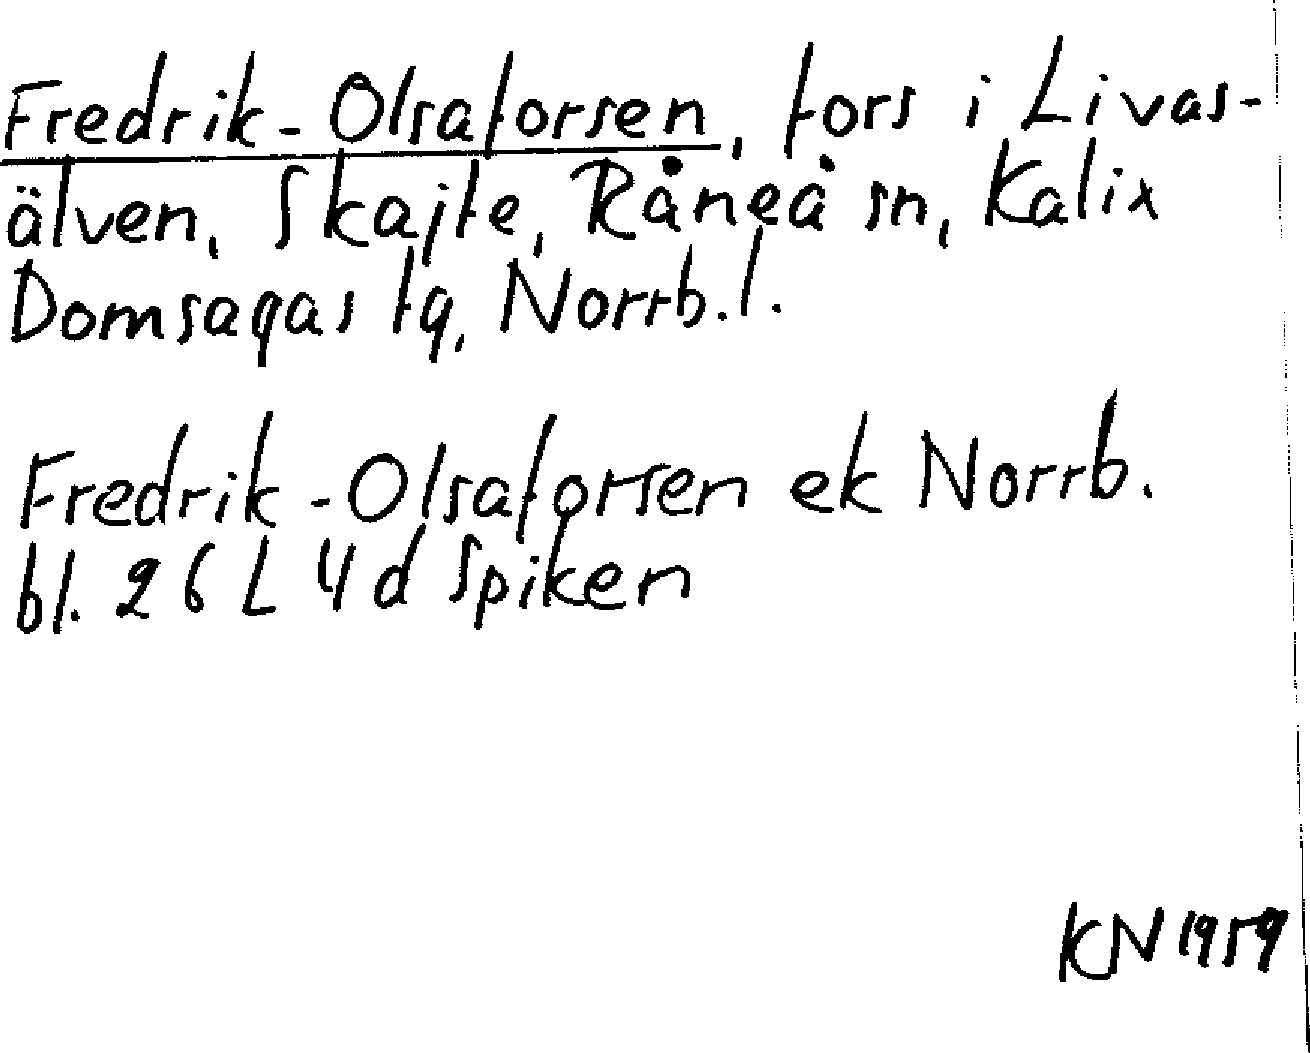 Fredrik-Olsaforsen, fors i Livas-
älven, Skajte, Råneå sn, Kalix
Domsagas tg, Norrb.l.
Fredrik-Olsaforsen ek Norrb.
bl. 26 L 4 d Spiken
KN 1959